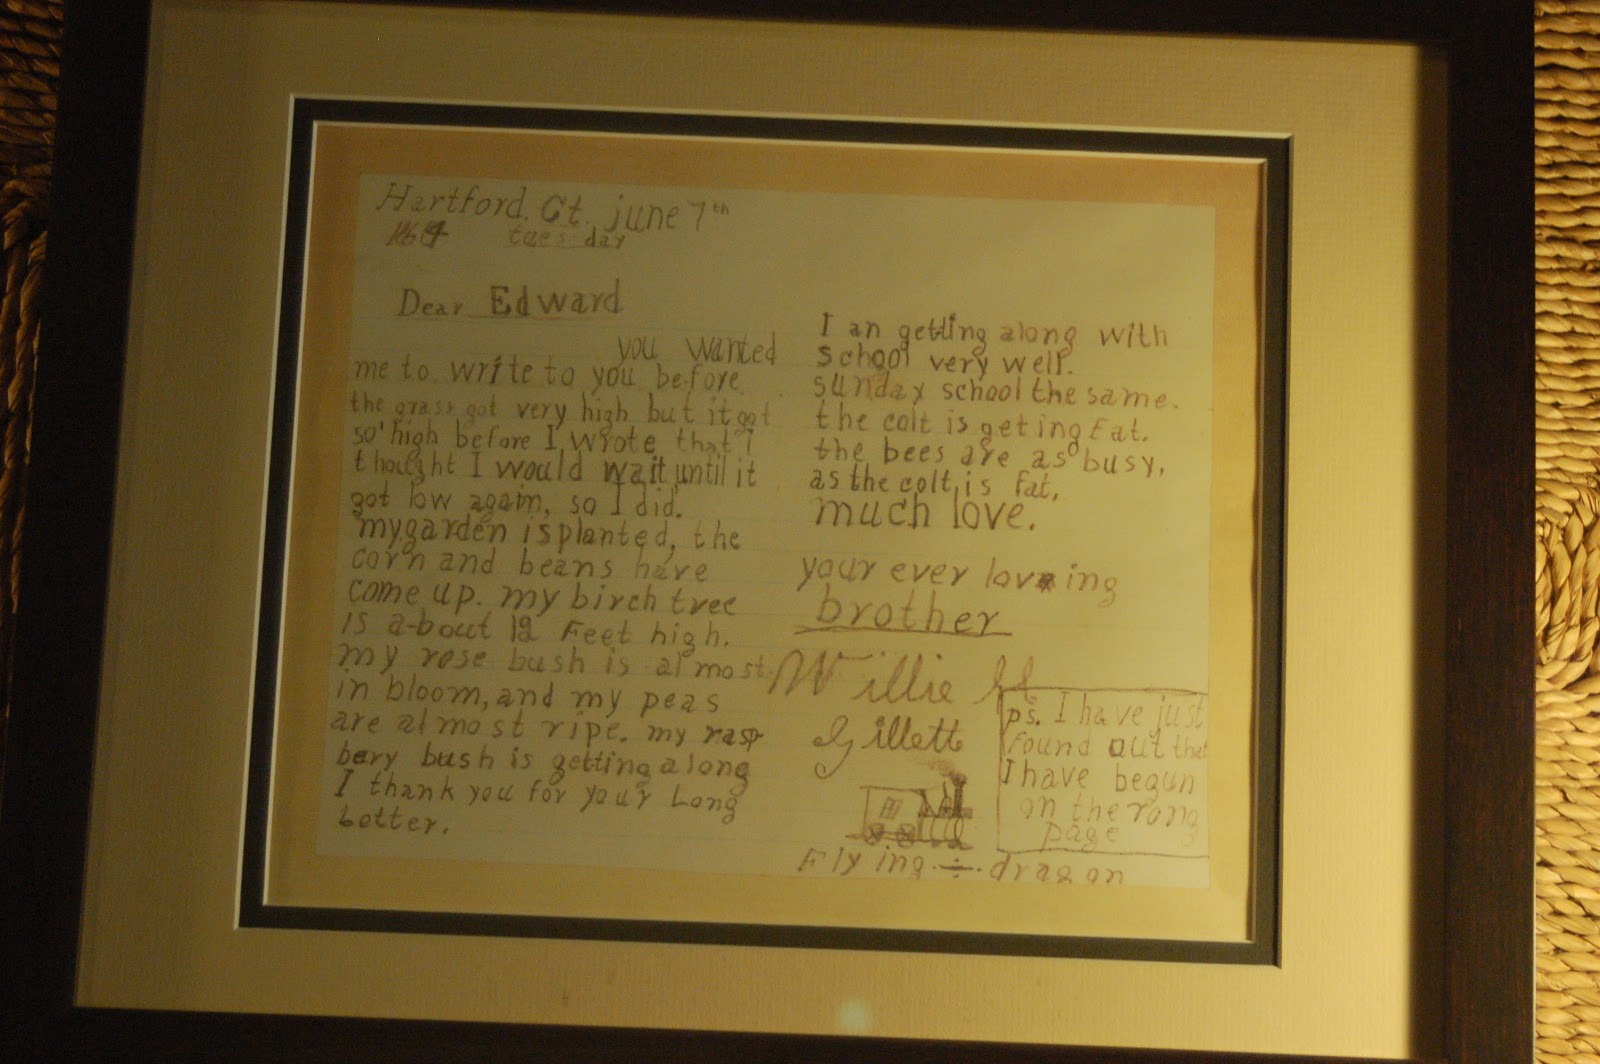 Hartford. Ct. june 7th
1864 tuesday
Dear Edward
you wanted
me to write to you before
the grass got very high but it got
so high before I wrote that I
thought I would wait until it
got low again, so I did.
my garden is planted, the
corn and beans have
come up. my birch tree
is a-bout 12 Feet high.
my rose bush is almost
in bloom, and my peas
are almost ripe. my rasp
bery bush is getting along
I thank you for your Long
Letter.
I an getting along with
school very well.
sunday school the same.
the colt is geting Fat.
the bees are as busy,
as the colt is fat.
much love.
your ever loving
brother
Willie H
Gillett
ps. I have just
Found out that
I have begun
on the rong
page
Flying ÷ dragon